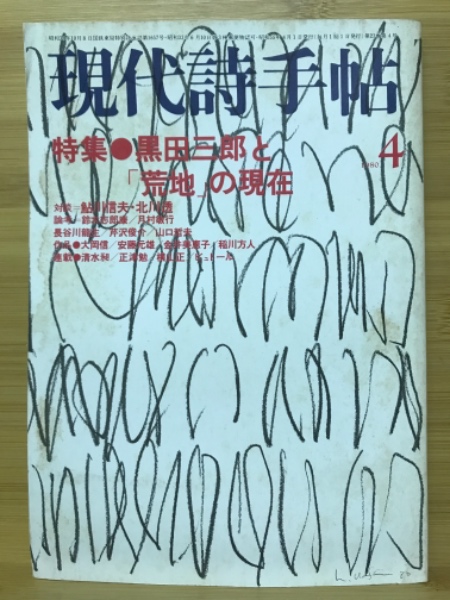 現代詩手帖
特集●黒田三郎と
「荒地」の現在
1980.
4
対談=鮎川信夫・北川透
論考/鈴木志郎康/月村敏行
長谷川龍生/芹沢俊介/山口哲夫
作品●大岡信/安藤元雄/金井美恵子/稲川方人
連載●清水昶/正津勉/横山正/ビュトール